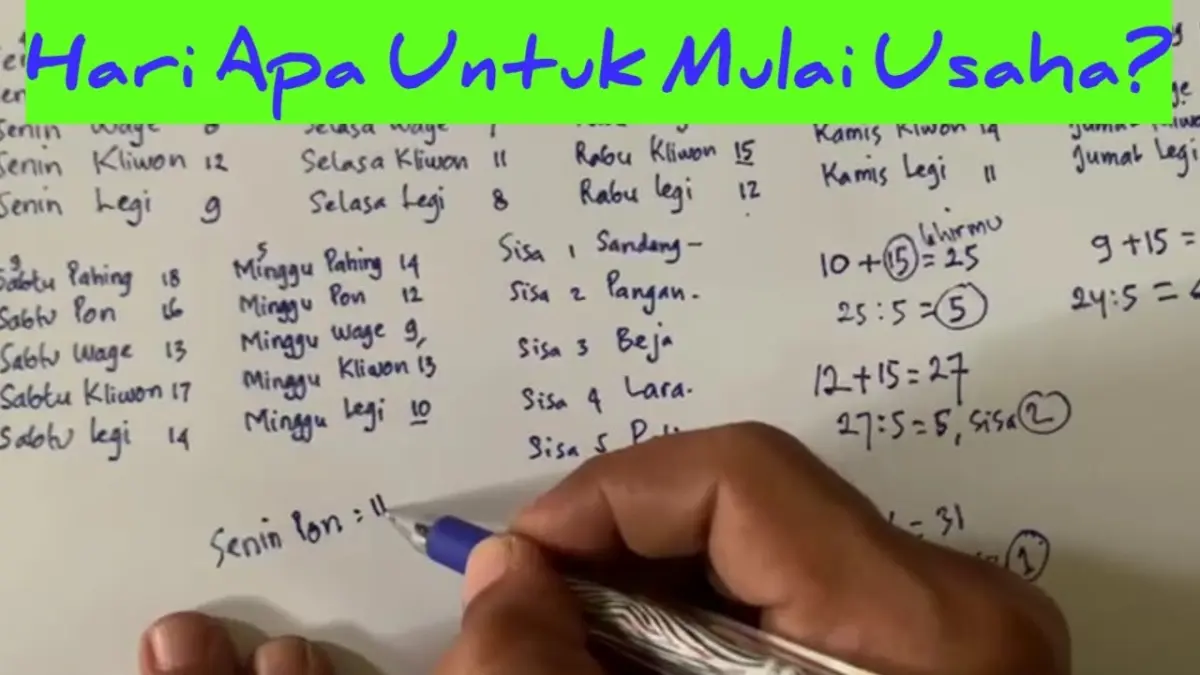 Hari Apa Untuk Mulai Usaha?
Senin Wage 8
Selasa Wage 7
Kamis Kliwon 14
Senin Kliwon 12
Selasa Kliwon 11
Rabu Kliwon 15
Kamis Legi 11
Jumat Legi
Senin Legi 9
Selasa Legi 8
Rabu Legi 12
Sabtu Pahing 18
Sabtu Pon 16
Sabtu Wage 13
Sabtu Kliwon 17
Sabtu Legi 14
5
Minggu Pahing 14
Minggu Pon 12
Minggu Wage 9,
Minggu Kliwon 13
Minggu Legi 10
Sisa 1 Sandang -
Sisa 2 Pangan.
Sisa 3 Beja
Sisa 4 Lara.
Sisa 5
10 + 15 = 25
25 : 5 = 5
12 + 15 = 27
27 : 5 = 5, sisa 2
= 31
1
9 + 15 =
24 : 5 =
Senin Pon = 11